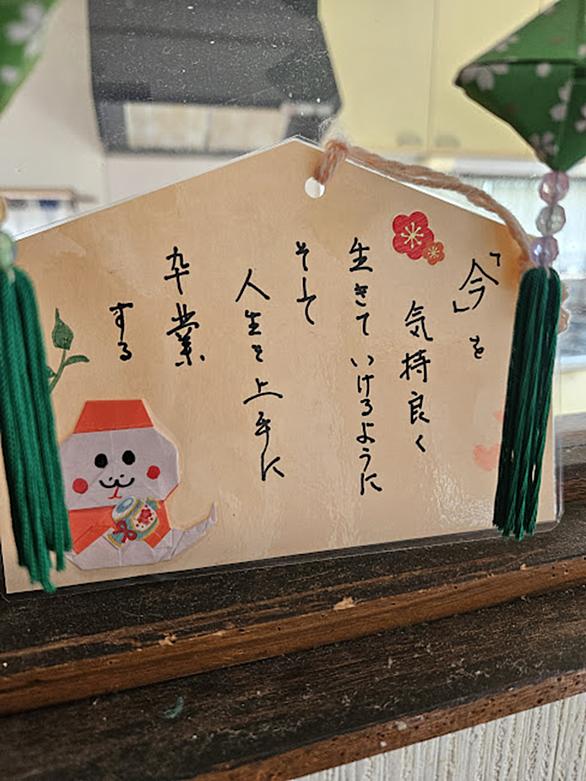 「今」を
気持良く
生きていけるように
そして
人生を上手に
卒業
する